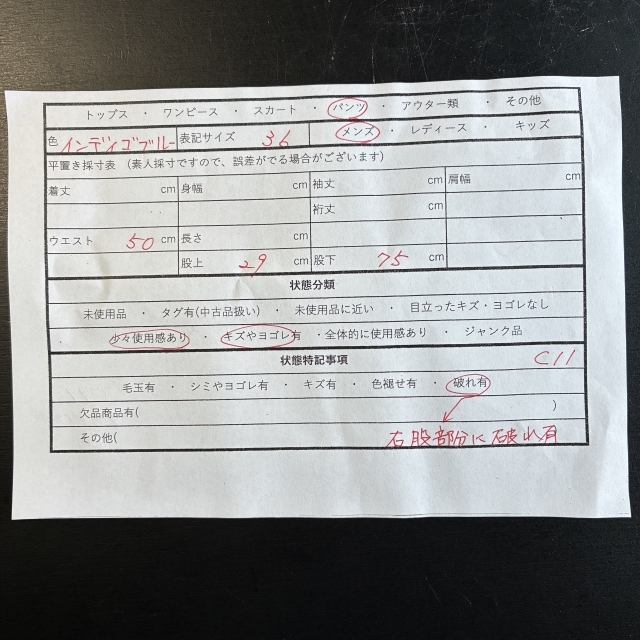 トップス ・ ワンピース ・ スカート ・ パンツ ・ アウター類 ・ その他
色 インディゴブルー 表記サイズ 36 メンズ ・ レディース ・ キッズ
平置き採寸表 (素人採寸ですので、誤差がでる場合がございます)
着丈 cm 身幅 cm 袖丈 cm 肩幅 cm
裄丈 cm
ウエスト 50 cm 長さ cm
股上 29 cm 股下 75 cm
状態分類
未使用品 ・ タグ有(中古品扱い) ・ 未使用品に近い ・ 目立ったキズ・ヨゴレなし
・ 少々使用感あり ・ キズやヨゴレ有 ・全体的に使用感あり ・ ジャンク品
状態特記事項 C11
毛玉有 ・ シミやヨゴレ有 ・ キズ有 ・ 色褪せ有 ・ 破れ有
欠品商品有( )
その他( 右股部分に破れ有